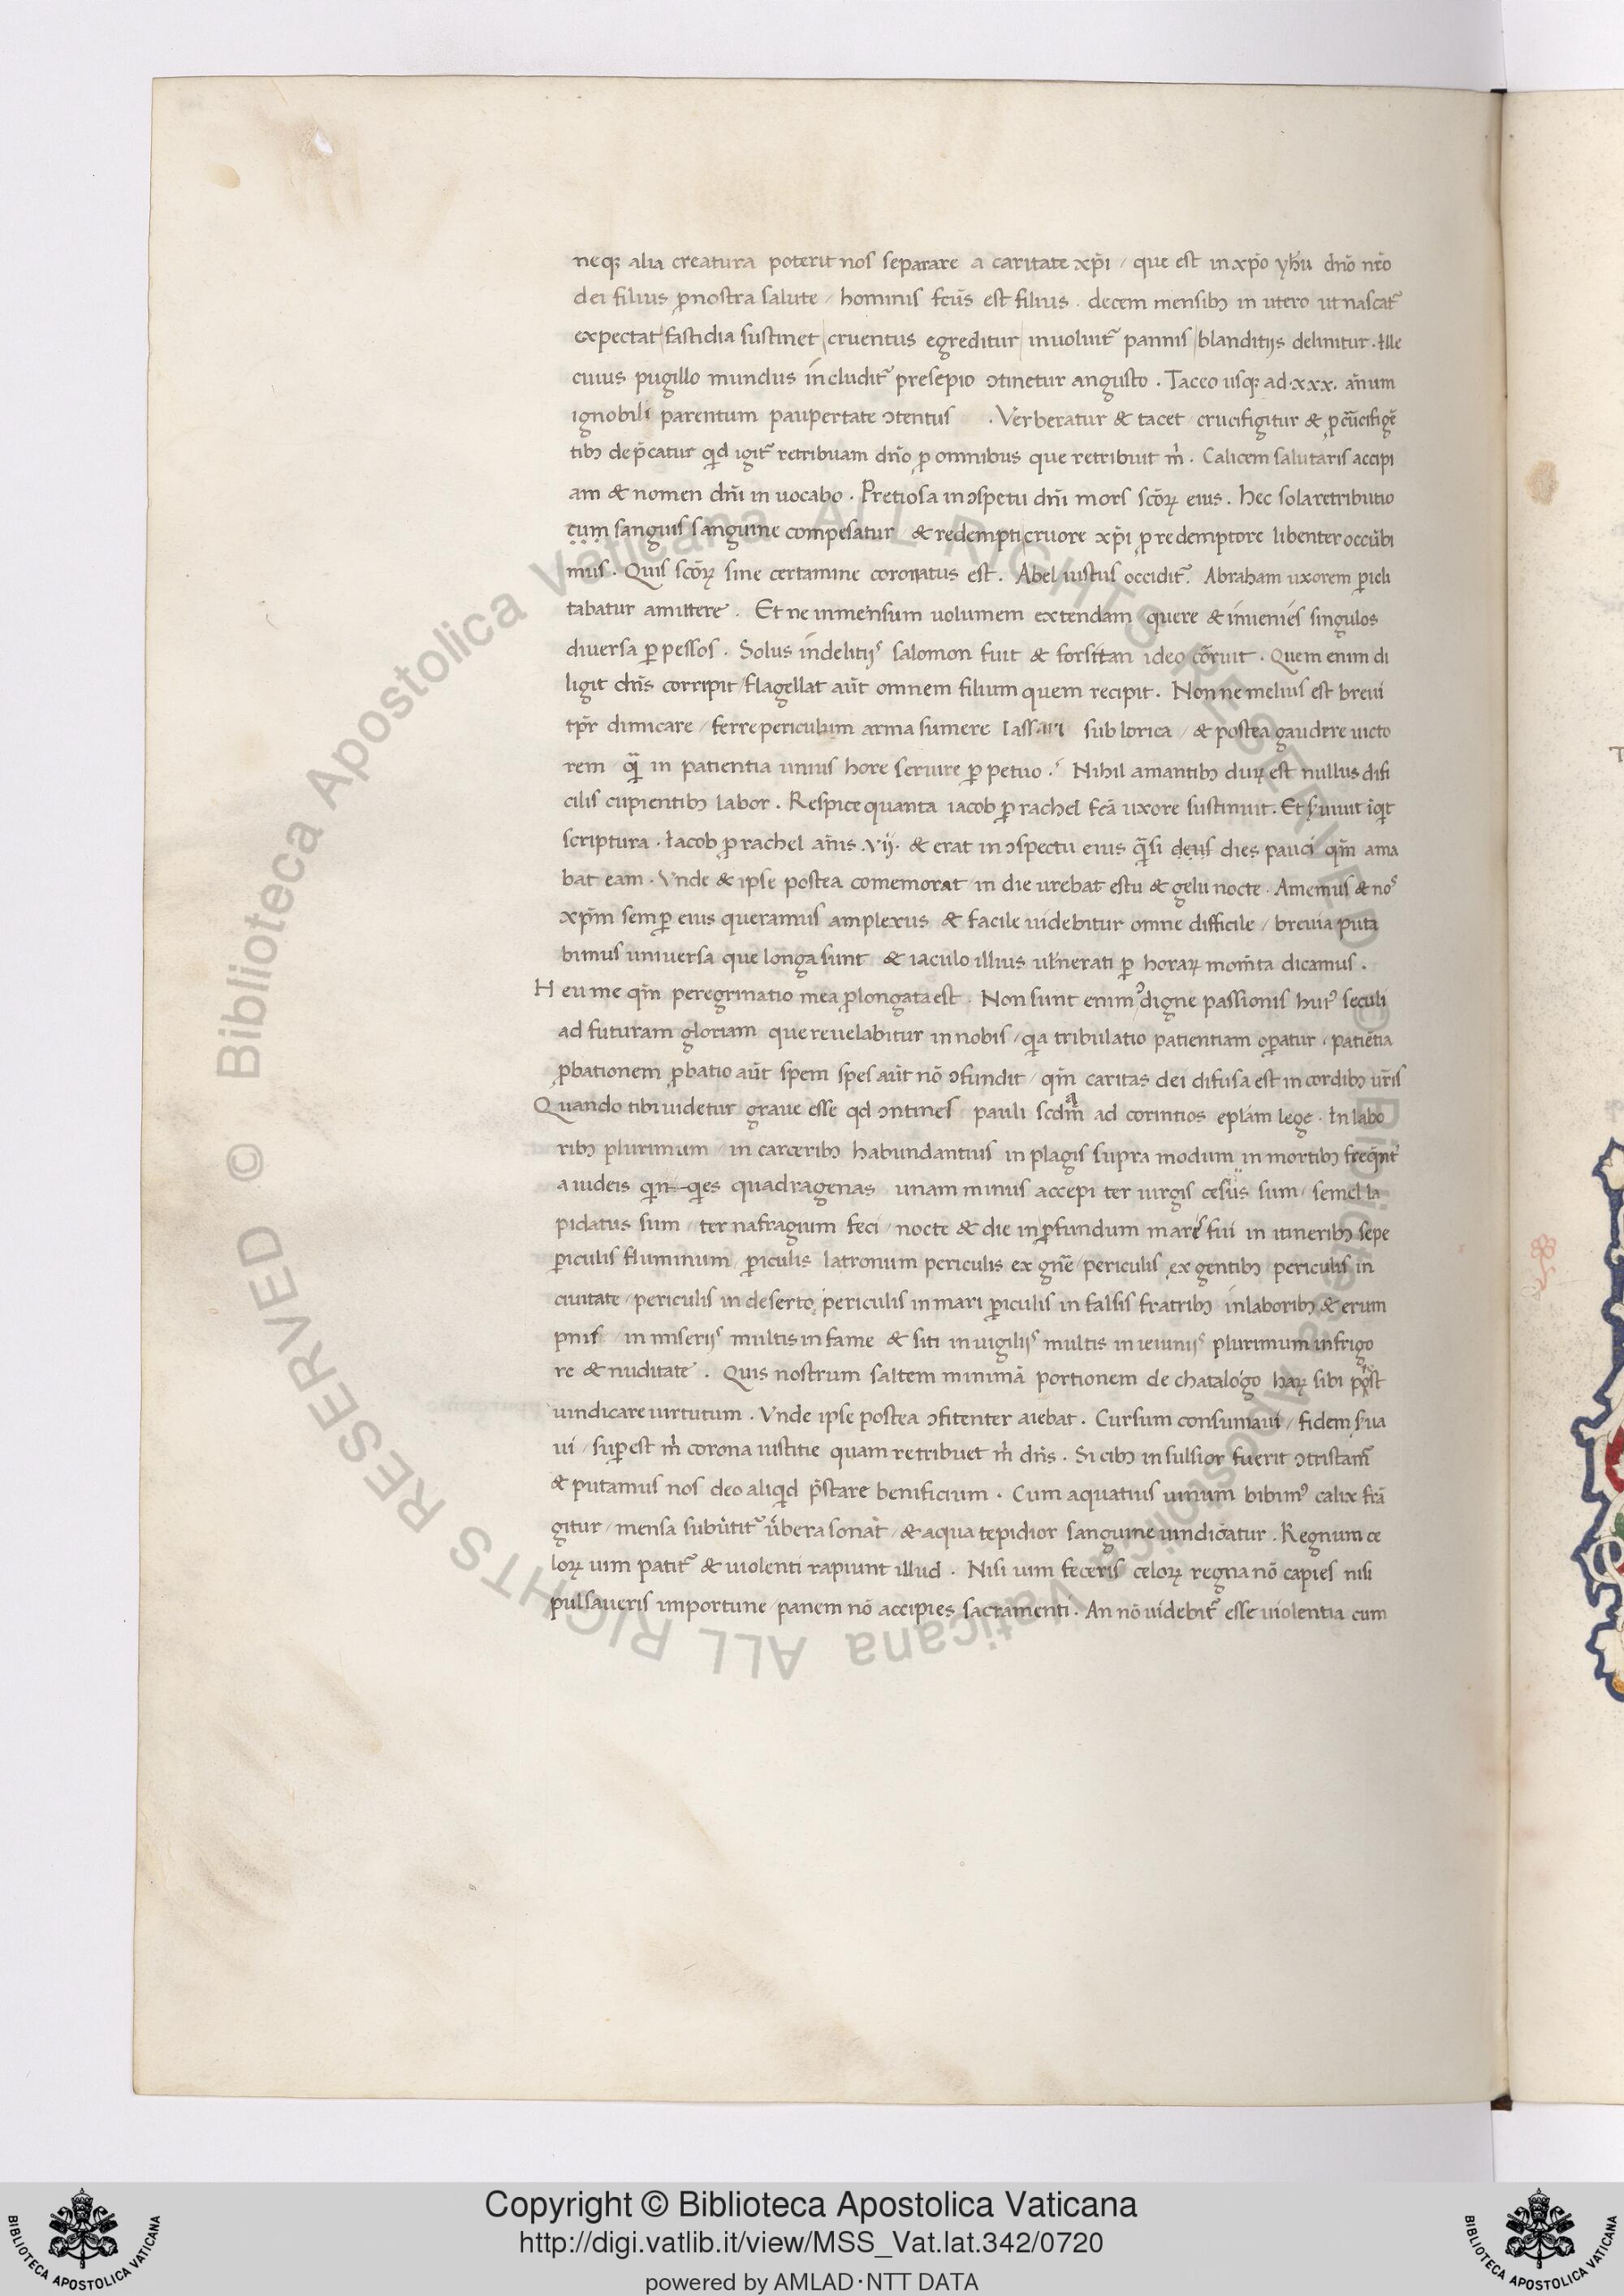 neqꝫ alia creatura poterit nos separare a caritate xp̄i / que est in xp̄o yh̄u dn̄o nr̄o
dei filius ꝓ nostra salute / hominis fcūs est filius . decem mensibꝫ in utero ut nascat᷑
expectat / fastidia sustinet / cruentus egreditur / inuoluit᷑ pannis / blanditijs delinitur . Ille
cuius pugillo mundus includit᷑ presepio ↄtinetur angusto . Taceo usqꝫ ad .xxx. an̄um
ignobili parentum paupertate ↄtentus . Verberatur & tacet crucifigitur & ꝓ crūcifigē
tibꝫ dep̄catur qͥd igit᷑ retribuam dn̄o ꝓ omnibus que retribuit m̄ . Calicem salutaris accipi
am & nomen dn̄i in uocabo . Pretiosa in ↄspetu dn̄i mors scōꝝ eius . Hec sola retributio
cum sanguis sanguine compēsatur & redempti cruore xp̄i ꝓ redemptore libenter occūbi
mus . Quis scōꝝ sine certamine coronatus est . Abel iustus occidit᷑ . Abraham uxorem ꝑicli
tabatur amittere . Et ne inmensum uolumem extendam quere & inuenies singulos
diuersa ꝑpessos . Solus in delitijs salomon fuit & forsitan ideo cōruit . Quem enim di
ligit dn̄s corripit / flagellat aūt omnem filium quem recipit . Nonne melius est breui
tp̄r dimicare / ferre periculum arma sumere lassari sub lorica / & postea gaudere uicto
rem qͣ in patientia unius hore seruire ꝑpetuo . Nihil amantibꝫ duꝝ est nullus difi
cilis cupientibꝫ labor . Respice quanta iacob ꝓ rachel fcā uxore sustinuit . Et s̄uiuit iq̄t
scriptura . Iacob ꝓ rachel an̄is .vij. & erat in ↄspectu eius qͣsi deus dies pauci qm̄ ama
bat eam . Vnde & ipse postea comemorat in die urebat estu & gelu nocte . Amemus & nos
xp̄m semꝑ eius queramus amplexus & facile uidebitur omne difficile / breuia puta
bimus uniuersa que longa sunt & iaculo illius ul̄nerati ꝑ horaꝝ mom̄ta dicamus .
Heu me qm̄ peregrinatio mea ꝓlongata est . Non sunt enim ꝯdigne passionis huiꝰ seculi
ad futuram gloriam que reuelabitur in nobis / qͥa tribulatio patientiam oꝑatur / patiētia
ꝓbationem ꝓbatio aūt spem spes aūt nō ↄfundit / qm̄ caritas dei difusa est in cordibꝫ ur̄is
Quando tibi uidetur graue esse qd ↄntines pauli scdm̄ᵃ ad corintios epl̄am lege . In labo
ribꝫ plurimum / in carceribꝫ habundantius in plagis supra modum in mortibꝫ freq̄nt᷑
a iudeis qͥnqͥes quadragenas unam minus accepi ter uirgis cesus sum / semel la
pidatus sum / ter nafragium feci / nocte & die in ꝓfundum maris fui in itineribꝫ sepe
ꝑiculis fluminum / ꝑiculis latronum periculis ex gn̄e / periculis ex gentibꝫ periculis in
ciuitate / periculis in deserto periculis in mari ꝑiculis in falsis fratribꝫ in laboribꝫ & erum
pnis / in miserijs multis in fame & siti in uigilijs multis in ieiunijs plurimum in frigo
re & nuditate . Quis nostrum saltem minimā portionem de chatalogo haꝝ sibi pōst
uindicare uirtutum . Vnde ipse postea ↄfitenter aiebat . Cursum consumaui / fidem s̄ua
ui / suꝑest m̄ corona iustitie quam retribuet m̄ dn̄s . Si cibꝫ insulsior fuerit ↄtristam᷑
& putamus nos deo aliqͥd p̄stare benificium . Cum aquatius uinum bibimꝰ calix frā
gitur / mensa subūtit᷑ ūbera sonāt / & aqua tepidior sanguine uindicatur . Regnum ce
loꝝ uim patit᷑ & uiolenti rapiunt illud . Nisi uim feceris celoꝝ regna nō capies nisi
pulsaueris importune / panem nō accipies sacramenti . An nō uidebit᷑ esse uiolentia cum
Copyright © Biblioteca Apostolica Vaticana
http://digi.vatlib.it/view/MSS_Vat.lat.342/0720
powered by AMLAD·NTT DATA
BIBLIOTECA APOSTOLICA VATICANA
BIBLIOTECA APOSTOLICA VATICANA
© Biblioteca Apostolica Vaticana ALL RIGHTS RESERVED © Biblioteca Apostolica Vaticana ALL RIGHTS RESERVED